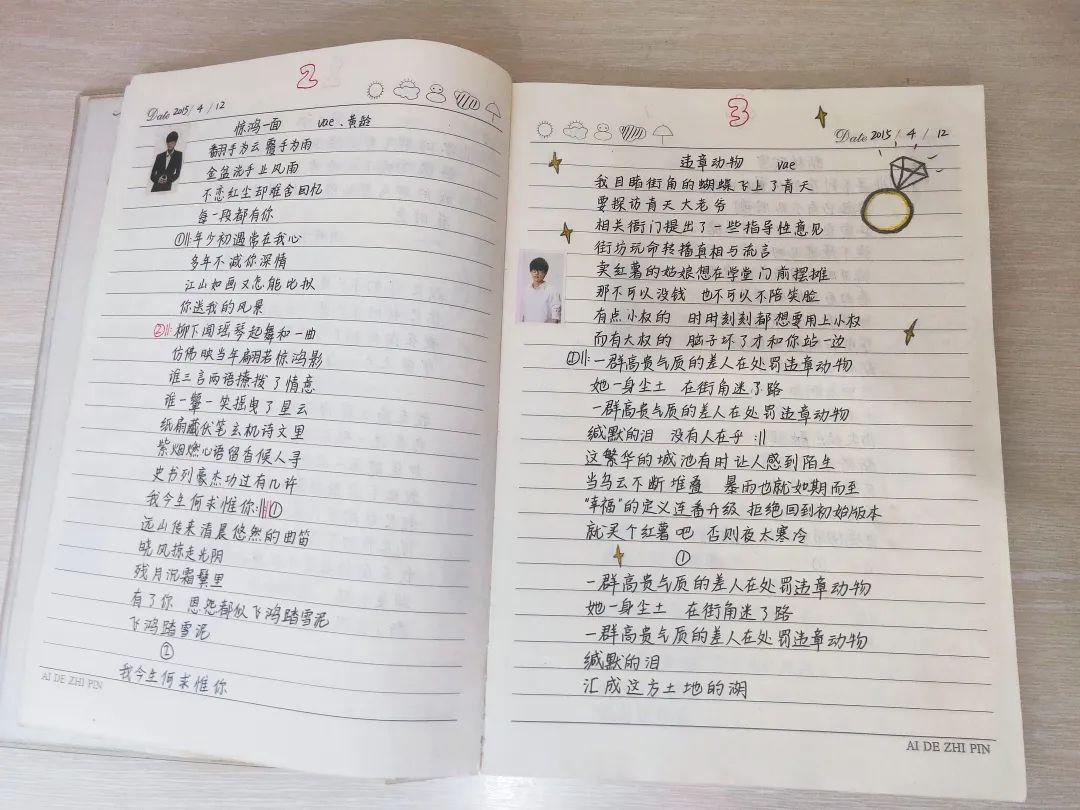 2
Date 2015 / 4 / 12
惊鸿一面 vae、黄龄
翻手为云覆手为雨
金盆洗手止风雨
不恋红尘却难舍回忆
每一段都有你
①||:年少初遇常在我心
多年不减你深情
江山如画又怎能比拟
你送我的风景
②||:柳下闻瑶琴起舞和一曲
仿佛映当年翩若惊鸿影
谁三言两语撩拨了情意
谁一颦一笑摇曳了星云
纸扇藏伏笔玄机诗文里
紫烟燃心语留香候人寻
史书列豪杰功过有几许
我今生何求惟你:||①
远山传来清晨悠然的曲笛
晓风掠走光阴
残月沉霜鬓里
有了你 恩怨都似飞鸿踏雪泥
飞鸿踏雪泥
②
我今生何求惟你
AI DE ZHI PIN
3
Date 2015 / 4 / 12
违章动物 vae
我目睹街角的蝴蝶飞上了青天
要探访青天大老爷
相关衙门提出了一些指导性意见
街坊玩命转播真相与流言
卖红薯的姑娘想在学堂门前摆摊
那不可以没钱 也不可以不陪笑脸
有点小权的 时时刻刻都想要用上小权
而有大权的 脑子坏了才和你站一边
①||:一群高贵气质的差人在处罚违章动物
她一身尘土 在街角迷了路
一群高贵气质的差人在处罚违章动物
缄默的泪 没有人在乎 :||
这繁华的城池有时让人感到陌生
当乌云不断堆叠 暴雨也就如期而至
“幸福”的定义连番升级 拒绝回到初始版本
就买个红薯吧 否则夜太寒冷
①
一群高贵气质的差人在处罚违章动物
她一身尘土 在街角迷了路
一群高贵气质的差人在处罚违章动物
缄默的泪
汇成这方土地的湖
AI DE ZHI PIN